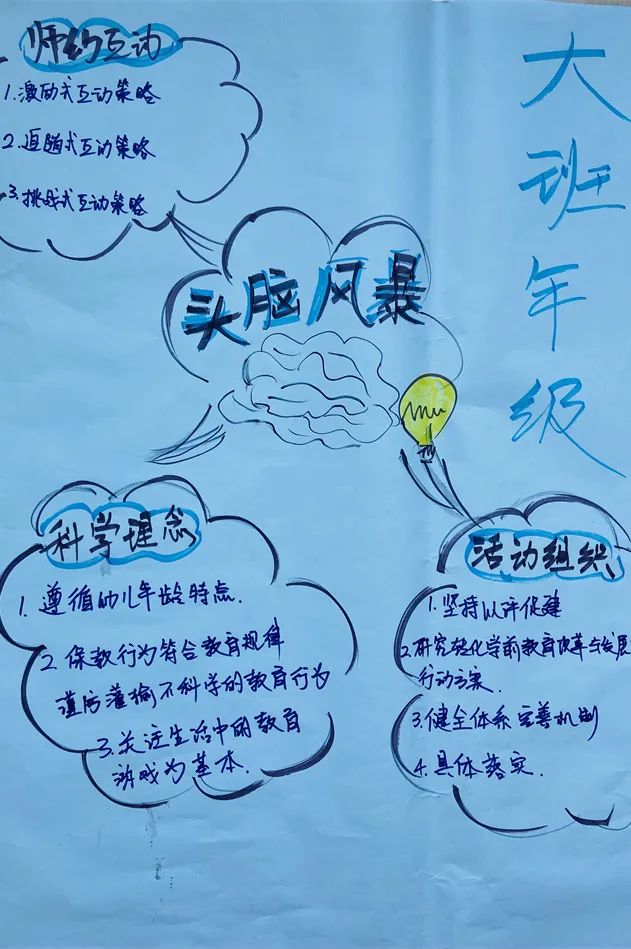 师幼互动
1.激励式互动策略
2.追随式互动策略
3.挑战式互动策略
头脑风暴
大班年级
科学理念
1.遵循幼儿年龄特点.
2保教行为符合教育规律
谨防灌输不科学的教育行为
3.关注生活中的教育
游戏为基本.
活动组织
1.坚持以评促建
2.研究转化学前教育改革与发展
行动方案.
3.健全体系完善机制
4.具体落实.